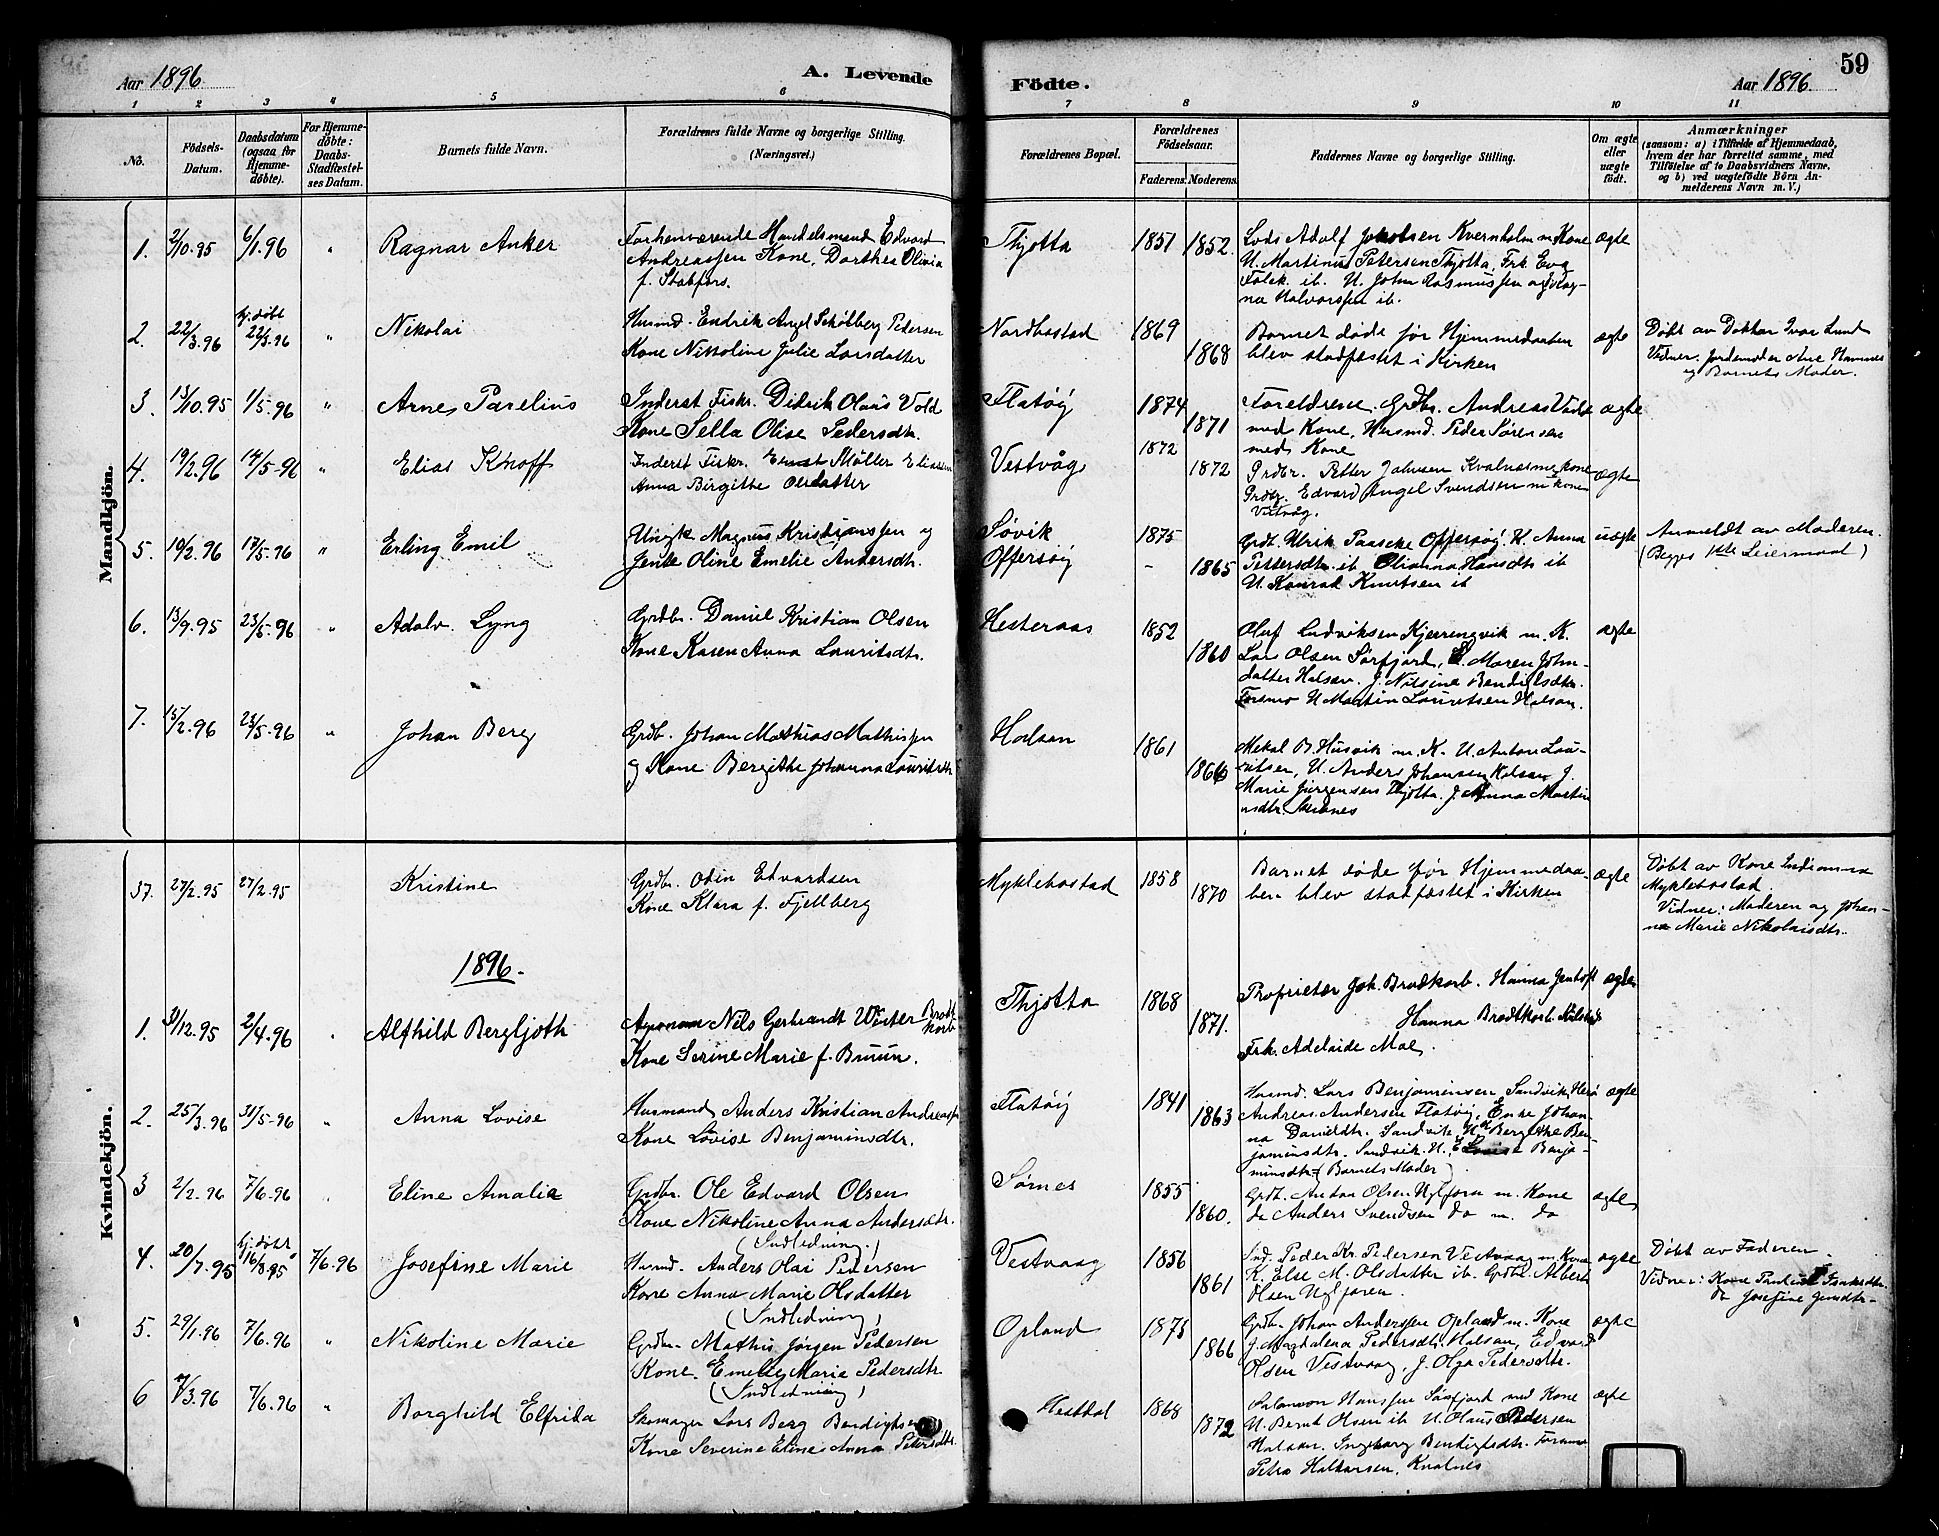 59
Aar 1896
A. Levende
Födte.
Aar 1896
1 2 3 4 5 6 7 8 9 10 11
No.
Födsels-Datum.
Daabsdatum (ogsaa for Hjemme-døbte).
For Hjemme-døbte: Daabs-Stadfæstel-ses Datum.
Barnets fulde Navn.
Forældrenes fulde Navne og borgerlige Stilling. (Næringsvei.)
Forældrenes Bopæl.
Forældrenes Födselsaar.
Faderens. Moderens.
Faddernes Navne og borgerlige Stilling.
Om ægte eller uægte födt.
Anmærkninger
(saasom: a) i Tilfælde af Hjemmedaab,
hvem der har forrettet samme, med
Tilföielse af to Daabsvidners Navne,
og b) ved uægtefödte Börn An-
melderens Navn m. V.)
Mandkjön.
1. 2/10.95 6/1.96 " Ragnar Anker
Forhenværende Handelsmand Edvard
Andreassen Kone, Dorthea Olivia
f. Stabfors.
Thjøtta 1851 1852.
Lods Adolf Jakobsen Kvernholm m Kone
U. Martinus Petersen Thjøtta, Frk. Eva
Falck ib. U. John Rasmussen og Mag-
na Halvorssen ib.
ægte
2. 22/3.96 hj. døbt 22/3.96 " Nikolai
Husmd. Endrik Angel Schølberg Pedersen
Kone Nikoline Julie Larsdatter
Nordbostad 1869 1868
Barnet døde før Hjemmedaaben
blev stadfæstet i Kirken
ægte
Døbt av Doktor Ivar Lund
Vidner. Jordemoder Ane Hamnes
og Barnets Moder.
3. 13/10.95 1/5.96 " Arne Parelius
Inderst Fiskr. Didrik Olaus Vold
Kone Sella Olise Pedersdtr.
Flatøy 1874 1871
Foreldrene, Grdbr. Andreas Vold
med Kone, Husmd. Peder Sørensen
med Kone
ægte
4. 19/2.96 14/5-96 " Elias Knoff
Inderst Fiskr. Ernst Møller Eliassen
Anna Birgitte Olsdatter
Vestvåg 1872 1872
Grdbr. Petter Johnsen Kvalnes m kone
Grdbr. Edvard Angel Svendsen m kone
Vestvåg.
ægte
5. 10/2.96 17/5.96 " Erling Emil
Ungk. Magnus Kristianssen og
Jente Oline Emelie Andersdtr.
Søvik
Offersøy
1875 - 1865
Grdb. Ulrik Paascke Offersøy. K. Anna
Pettersdtr. ib Olianna Hansdtr ib
U. Konrad Knutsen ib
uægte
Anmeldt av Moderen.
(Begges 1ste Leiermaal)
6. 13/9.95 23/5.96 " Adolv. Lyng
Grdbr. Daniel Kristian Olsen
Kone Karen Anna Lauritsdtr.
Hesteraas 1852 1860
Oluf Ludviksen Kjerringvik m. K.
Lars Olsen Sørfjord, Maren John-
datter Halsan. J. Nilsine Bendigtsdtr.
Forsmo U Martin Lauritsen Halsan.
ægte
7. 15/2.96 23/5.96 " Johan Berg
Grdb. Johan Mathias Mathissen
og Kone Bergithe Johanna Lauritsdtr
Halsan 1861 1866
Mekal B. Husvik m. K. U. Anton Lau-
ritsen, U. Anders Johansen Halsan, J.
Marie Jürgensen Thjøtta. J. Anna Martin
usdtr.
Kvindekjön.
37. 27/2.95 27/2.95 Kristine
Grdbr. Odin Edvardsen
Kone Klara f. Fjellberg
Myklebostad 1858 1870
Barnet døde før Hjemmedaa-
ben blev stadfæstet i Kirken
ægte
Døbt av Kone Indianna
Myklebostad.
Vidner: Moderen og Johan-
na Marie Nikolaisdtr.
1896.
1. 31/12.95 2/4.96 " Alfhild Bergljoth
Agronom Nils Gerbrandt Winter Brodtkorb
Kone Serine Marie f. Bruun.
Thjøtta 1868 1871.
Proprietær Joh. Brodkorb. Hanna Jentoft
Hanna Brodtkorb
Frk. Adelaide Moe.
ægte
2. 25/3.96 31/5-96 " Anna Lovise
Husmand Anders Kristian Andreassen
Kone Lovise Benjaminsdtr.
Flatøy 1841 1863
Husmd. Lars Benjaminsen, Sandvik Herø
Andreas Andersen Flatøy, Enke Johan-
na Danieldtr. Sandvik, Bergithe Ben-
jaminsdtr. Sandvik. Lovise Benja-
minsdtr (Barnets Moder)
ægte
3 2/2.96 7/6.96 " Eline Amalie
Grdbr. Ole Edvard Olsen
Kone Nikoline Anna Andersdtr.
(Indledning.)
Sørnes 1855 1860.
Grdb. Anton Olsen Uglfjorn m. Kone
do Anders Svendsen do m. do
ægte
4. 20/7.95 hj. døbt 16/8.95 7/6.96 Josefine Marie
Husmd. Anders Olai Petersen
Kone Anna Marie Olsdatter
(Indledning)
Vestvaag 1856 1861
Ind. Peder Kr. Petersen Vestvaag m. Kone
K. Else M. Olsdatter ib. Grdbr. Albert
Olsen
ægte
Døbt av Faderen.
Vidner: Kone
do Josefine
5. 29/1.96 7/6.96 " Nikoline Marie
Grdbr. Mathis Jørgen Pedersen
Kone. Emelie Marie Pedersdtr
(Indledning)
Opland 1875 1866
Grdb. Johan Anderssen Opland m. Kone
J. Magdalena Pedersdtr. Halsan, Edvard
Olsen Vestvaag, J. Olga Pedersdtr.
ægte
6 7/3.96 7/6.96 " Borghild Elfrida
Skomager Lars Berg Bendigtsen
Kone Severine Eline Anna Petersdtr.
Hestdal 1868 1872
Salamon Hanssen Sørfjord med Kone
U. Bernt Olsen ib U. Olaus Pedersen
Halsan. Ingeborg Bendigtsdtr. Forsmo
Petra Halvorsen, Kvalnes
ægte